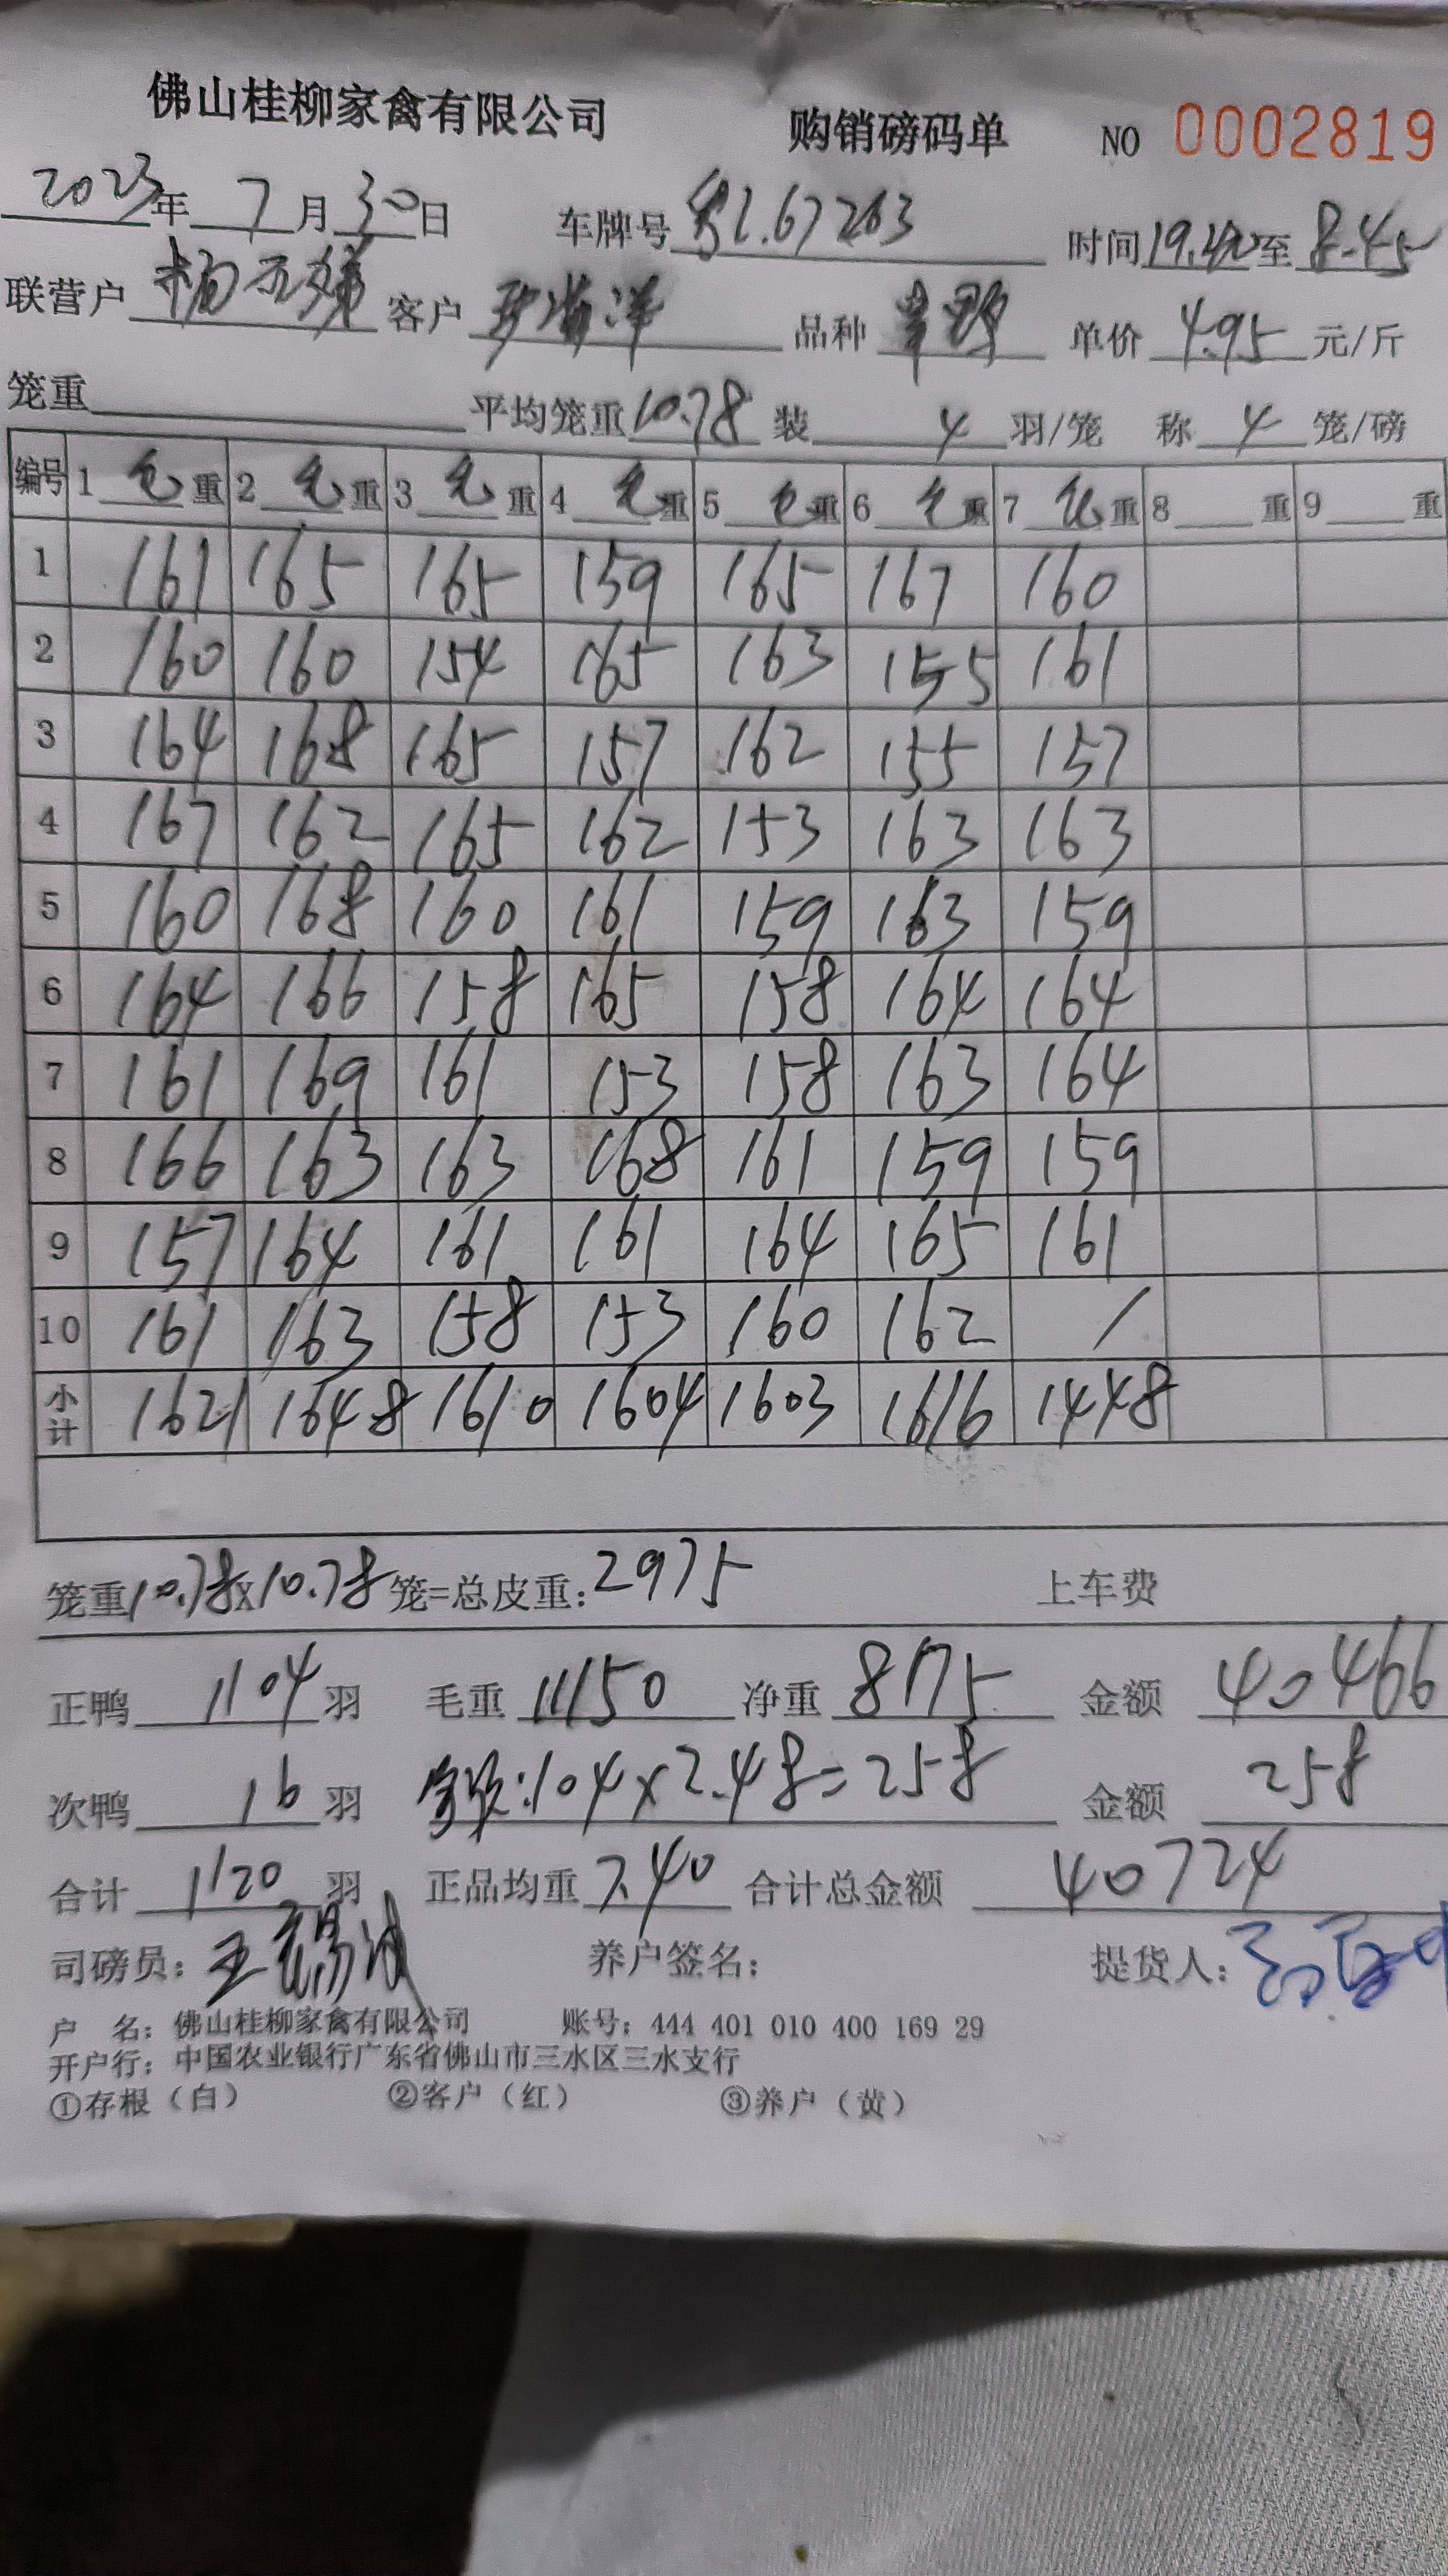 佛山桂柳家禽有限公司 购销磅码单 NO 0002819
2023年 7月 30日 车牌号 粤L.67263 时间 19.40 至 8.45
联营户 杨 客户 海洋 品种 单价 4.95 元/斤
笼重 平均笼重 10.78 装 4 羽/笼 称 4 笼/磅
编号 1 毛 重 2 毛 重 3 毛 重 4 毛 重 5 毛 重 6 毛 重 7 毛 重 8 重 9 重
1 161 165 165 159 165 167 160
2 160 160 154 165 163 155 161
3 164 168 165 157 162 155 157
4 167 162 165 162 153 163 163
5 160 168 160 161 159 163 159
6 164 166 158 165 158 164 164
7 161 169 161 153 158 163 164
8 166 163 163 168 161 159 159
9 157 164 161 161 164 165 161
10 161 163 158 153 160 162 /
小计 1621 1648 1610 1604 1603 1616 1448
笼重 10.78 x 10.78 笼=总皮重: 2975 上车费
正鸭 1104 羽 毛重 11150 净重 8175 金额 40466
次鸭 16 羽 :104x2.48=258 金额 258
合计 1120 羽 正品均重 7.40 合计总金额 40724
司磅员: 王 养户签名: 提货人:
户 名: 佛山桂柳家禽有限公司 账号: 444 401 010 400 169 29
开户行: 中国农业银行广东省佛山市三水区三水支行
①存根（白） ②客户（红） ③养户（黄）